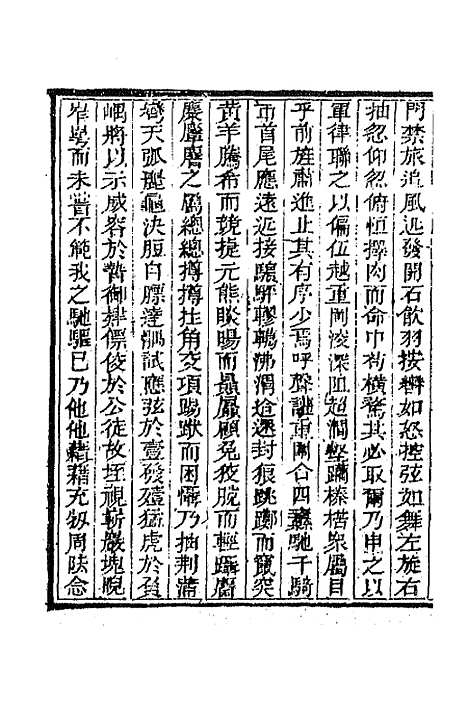 門禁旅追風迅發開石飲羽按轡如怒控弦如舞左旋右
抽忽仰忽俯恒擇肉而命中苟橫騖其必取爾乃申之以
軍律聯之以偏伍越重岡凌深阻超澗壑躪榛楛眾屬目
乎前旌肅進止其有序少焉呼聲讙重圍合四驀馳千騎
帀首尾應遠近接驍駬轇轕沸渭途遝封狼跳躑而竄突
黃羊騰希而競捷元熊睒暘而懾嚴顧兔狡脫而輕躡麕
麋麢麠之屬總總撙撙拄角交項踢踧而困憊乃抽荆蒲
彎天弧麗龜決脰白膘達淵試應弦於壹發殪猛虎於負
嵎將以示威容於暬御肄僄俊於公徒故垤視嶄巖塊睨
崒嵂而未嘗不範我之馳驅巳乃他他藉藉充牣周阹念